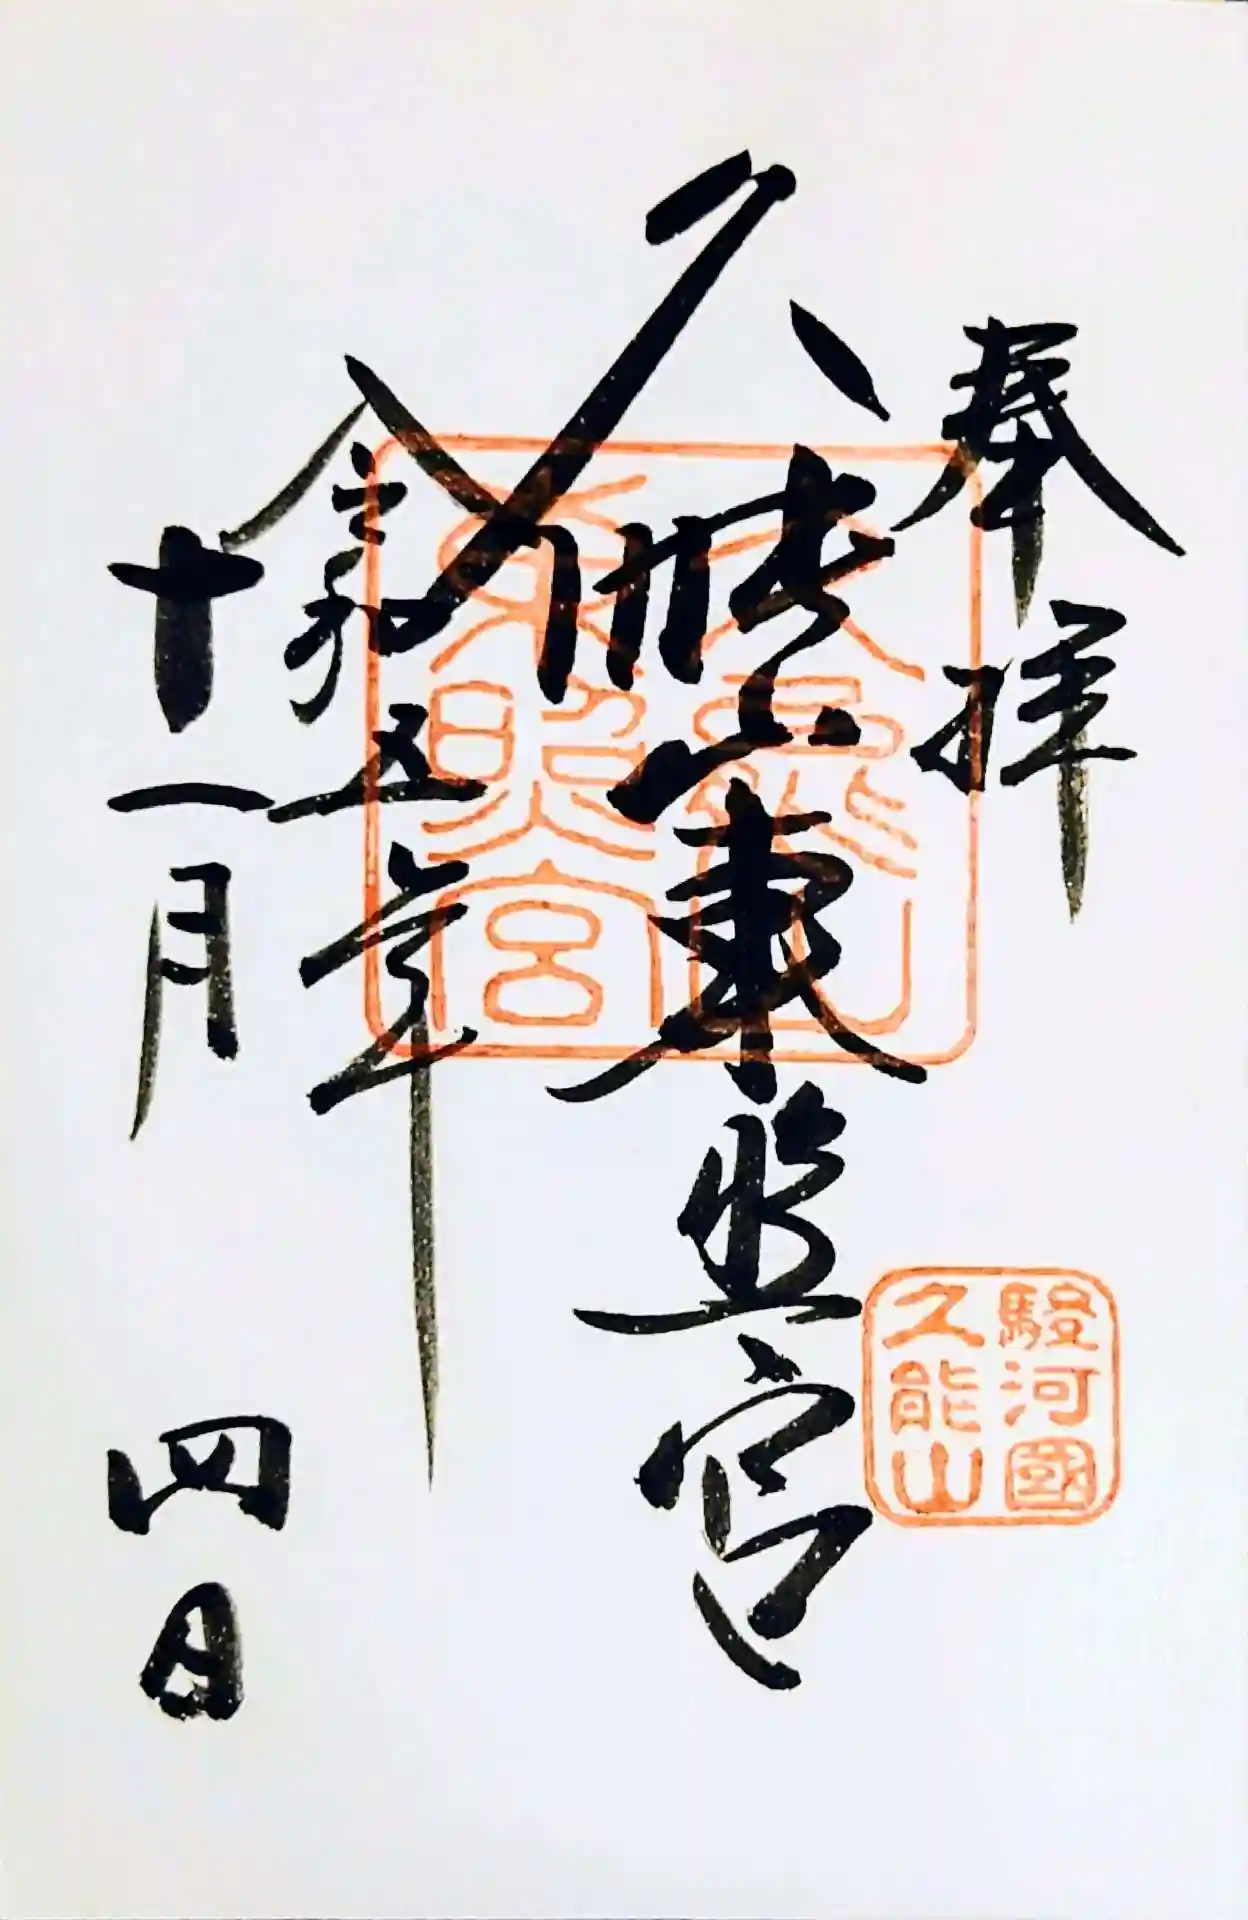 奉拝
駿河國
久能山
久能山東照宮
久能山
東照宮
令和五年
十一月四日